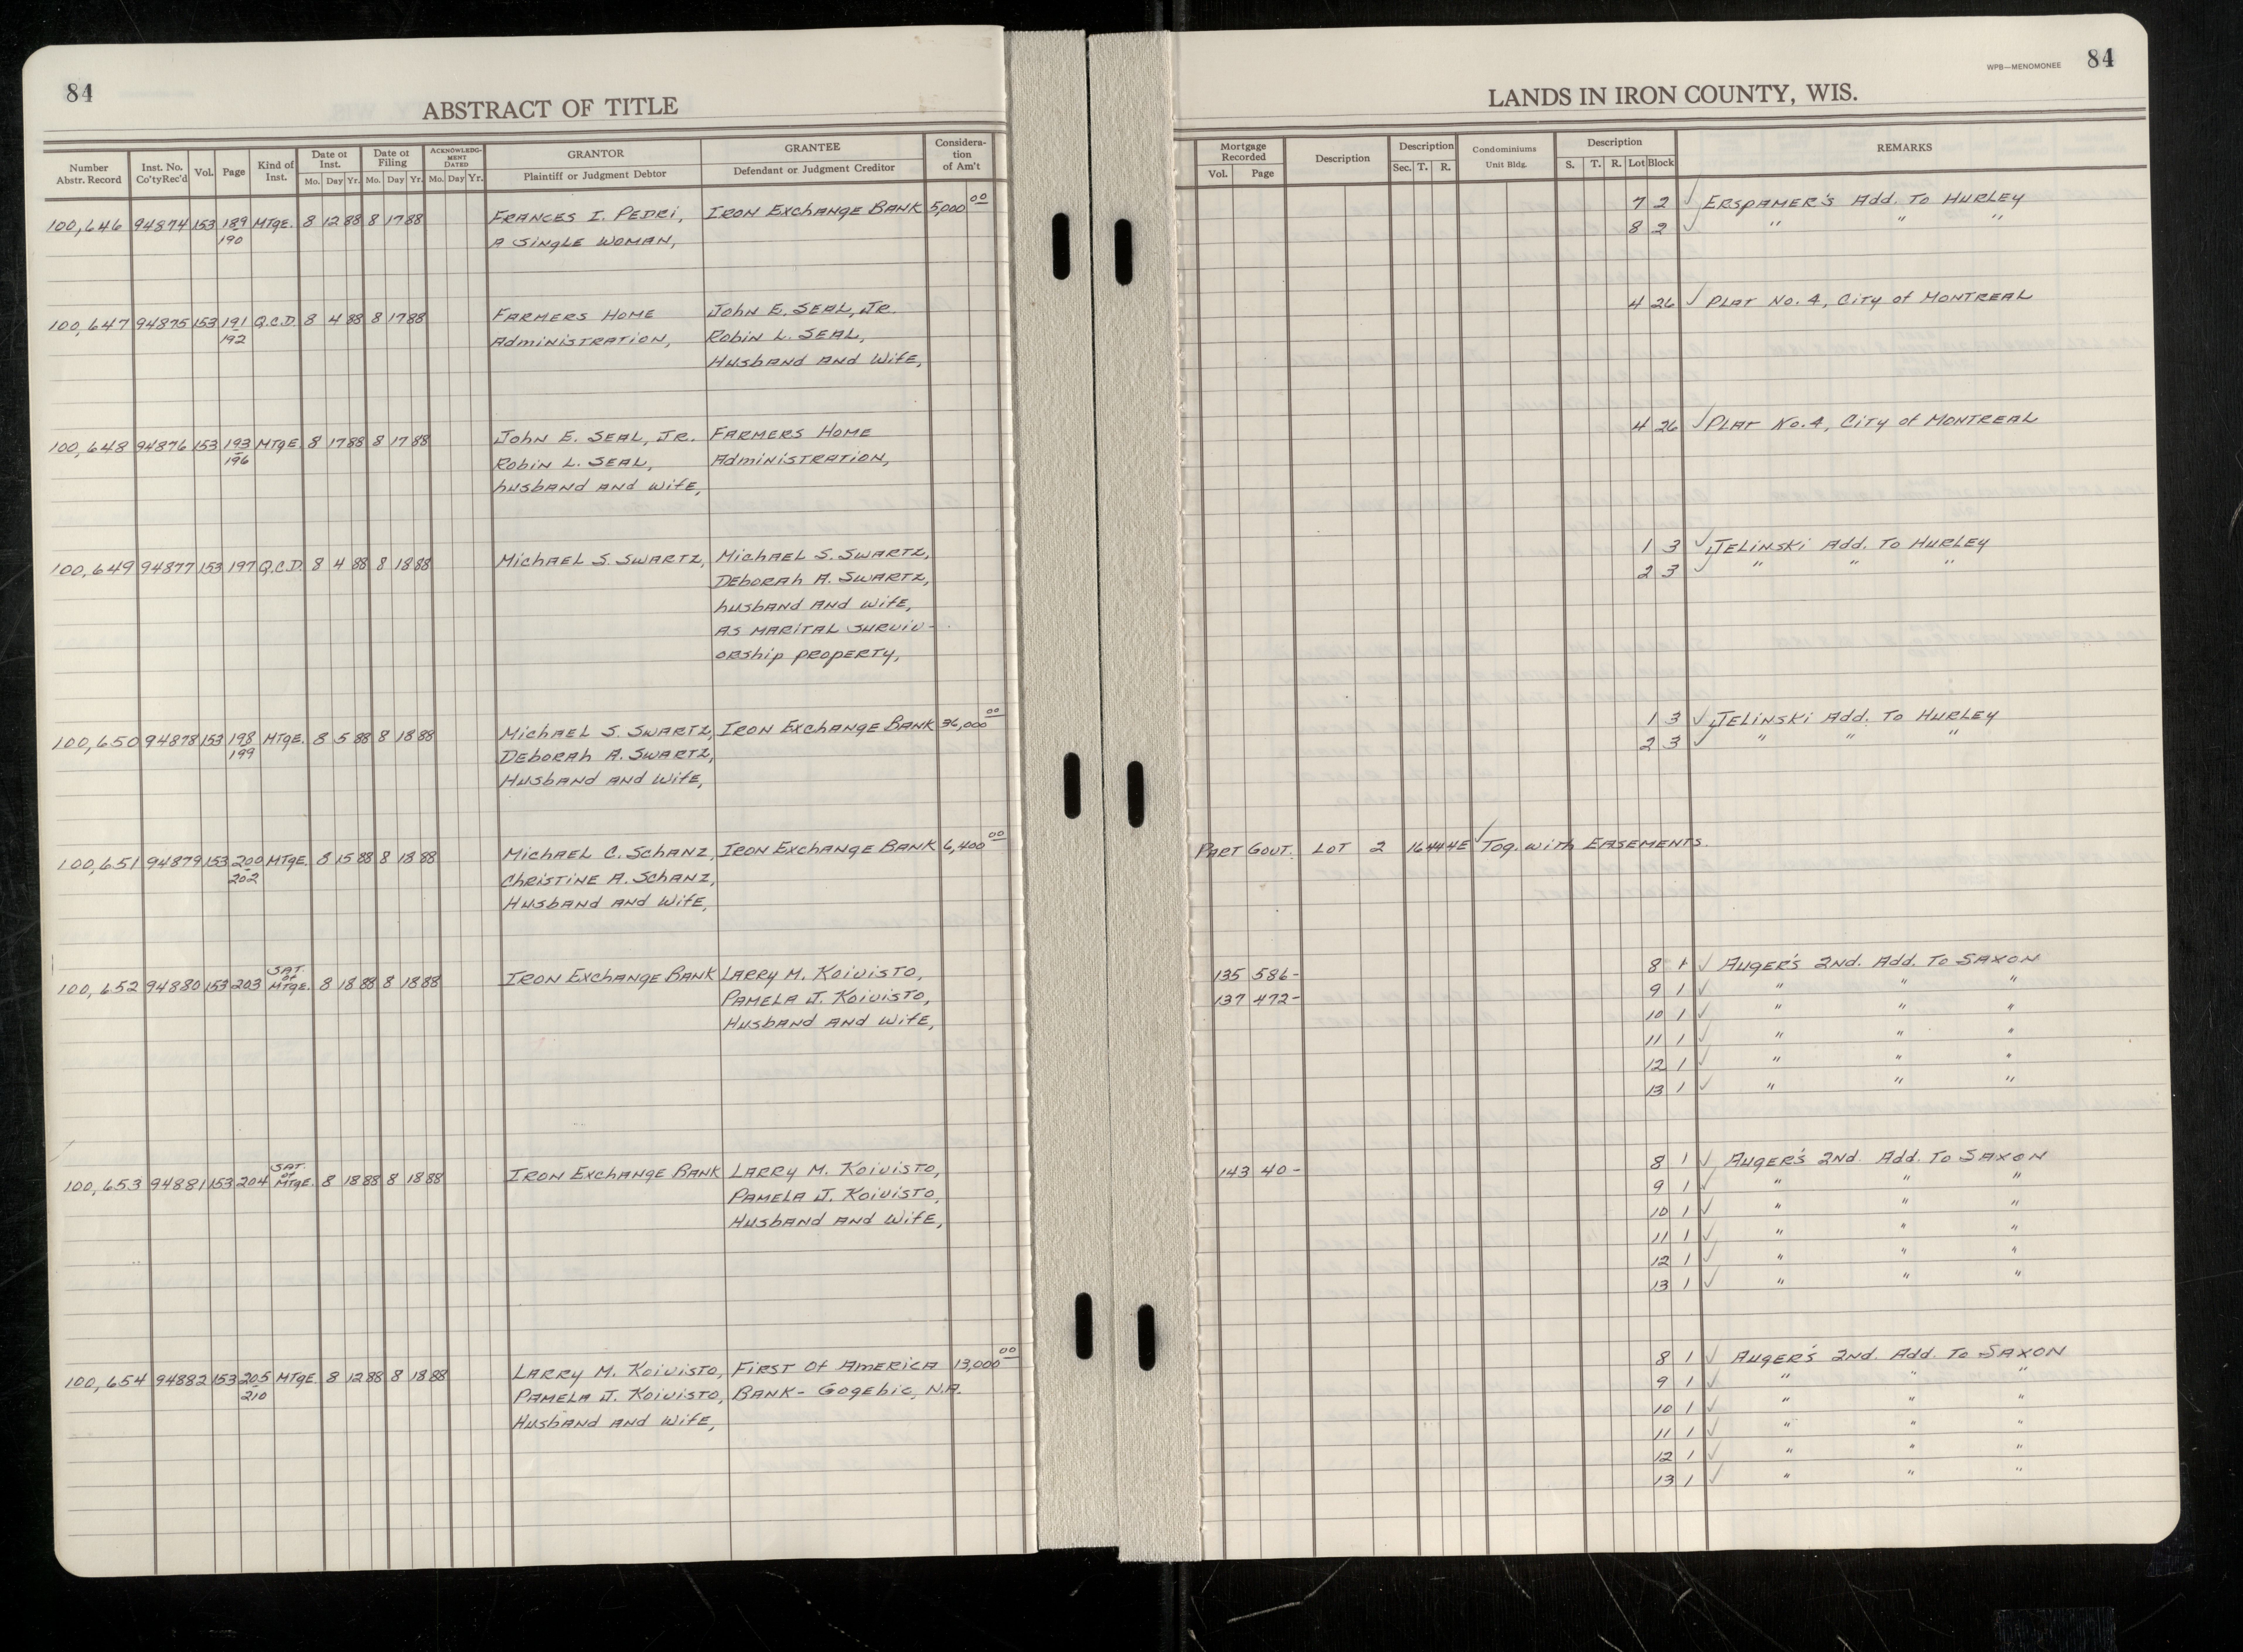 84
ABSTRACT OF TITLE
Number Abstr. Record | Inst. No. Co'ty Rec'd | Vol. | Page | Kind of Inst. | Date of Inst. Mo. Day Yr. | Date of Filing Mo. Day Yr. | ACKNOWLEDGMENT DATED Mo. Day Yr. | GRANTOR Plaintiff or Judgment Debtor | GRANTEE Defendant or Judgment Creditor | Consideration of Am't
100,646 94874 153 189 MTgE. 8 12 88 8 17 88 FRANCES I. PEDRI, IRON EXCHANGE BANK 5,000 00
190 A SINGLE WOMAN,
100,647 94875 153 191 Q.C.D. 8 4 88 8 17 88 FARMERS HOME John E. SEAL, JR.
192 AdMINISTRATION, Robin L. SEAL,
HUSBAND AND WIFE,
100,648 94876 153 193 MTgE. 8 17 88 8 17 88 John E. SEAL, JR. FARMERS HOME
196 Robin L. SEAL, AdMINISTRATION,
husband AND WIFE,
100,649 94877 153 197 Q.C.D. 8 4 88 8 18 88 MichAEL S. SWARTZ, MichAEL S. SWARTZ,
DEBORAH A. SWARTZ,
husband AND WIFE,
AS MARITAL SURVIV-
ORShip PROPERTY,
100,650 94878 153 198 MTgE. 8 5 88 8 18 88 MichAEL S. SWARTZ, IRON EXCHANGE BANK 36,000 00
199 DEBORAH A. SWARTZ,
HUSBAND AND WIFE,
100,651 94879 153 200 MTgE. 8 15 88 8 18 88 MichAEL C. SchANZ, IRON EXCHANGE BANK 6,400 00
202 ChRISTINE A. SchANZ,
HUSBAND AND WIFE,
100,652 94880 153 203 SAT. of MTgE. 8 18 88 8 18 88 IRON EXCHANGE BANK LARRY M. KOIVISTO,
PAMELA J. KOIVISTO,
HUSBAND AND WIFE,
100,653 94881 153 204 SAT. of MTgE. 8 18 88 8 18 88 IRON EXCHANGE BANK LARRY M. KOIVISTO,
PAMELA J. KOIVISTO,
HUSBAND AND WIFE,
100,654 94882 153 205 MTgE. 8 12 88 8 18 88 LARRY M. KOIVISTO, FIRST Of AMERICA 13,000 00
210 PAMELA J. KOIVISTO, BANK- GOgEbic, N.A.
HUSBAND AND WIFE,
WPB—MENOMONEE 84
LANDS IN IRON COUNTY, WIS.
Mortgage Recorded Vol. Page | Description | Description Sec. T. R. | Condominiums Unit Bldg. | Description S. T. R. Lot Block | REMARKS
7 2 ✓ ERSPAMER'S Add. To HURLEY
8 2 ✓ " " "
4 26 ✓ PLAT No. 4, City of MONTREAL
4 26 ✓ PLAT No. 4, City of MONTREAL
1 3 ✓ JELINSKI Add. To HURLEY
2 3 ✓ " " "
1 3 ✓ JELINSKI Add. To HURLEY
2 3 ✓ " " "
PART GOVT. LOT 2 16 44 4E ✓ Tog. with EASEMENTS.
135 586- 8 1 ✓ AUGER'S 2ND. Add. To SAXON
137 472- 9 1 ✓ " " "
10 1 ✓ " " "
11 1 ✓ " " "
12 1 ✓ " " "
13 1 ✓ " " "
143 40- 8 1 ✓ AUGER'S 2ND. Add. To SAXON
9 1 ✓ " " "
10 1 ✓ " " "
11 1 ✓ " " "
12 1 ✓ " " "
13 1 ✓ " " "
8 1 ✓ AUGER'S 2ND. Add. To SAXON
9 1 ✓ " " "
10 1 ✓ " " "
11 1 ✓ " " "
12 1 ✓ " " "
13 1 ✓ " " "